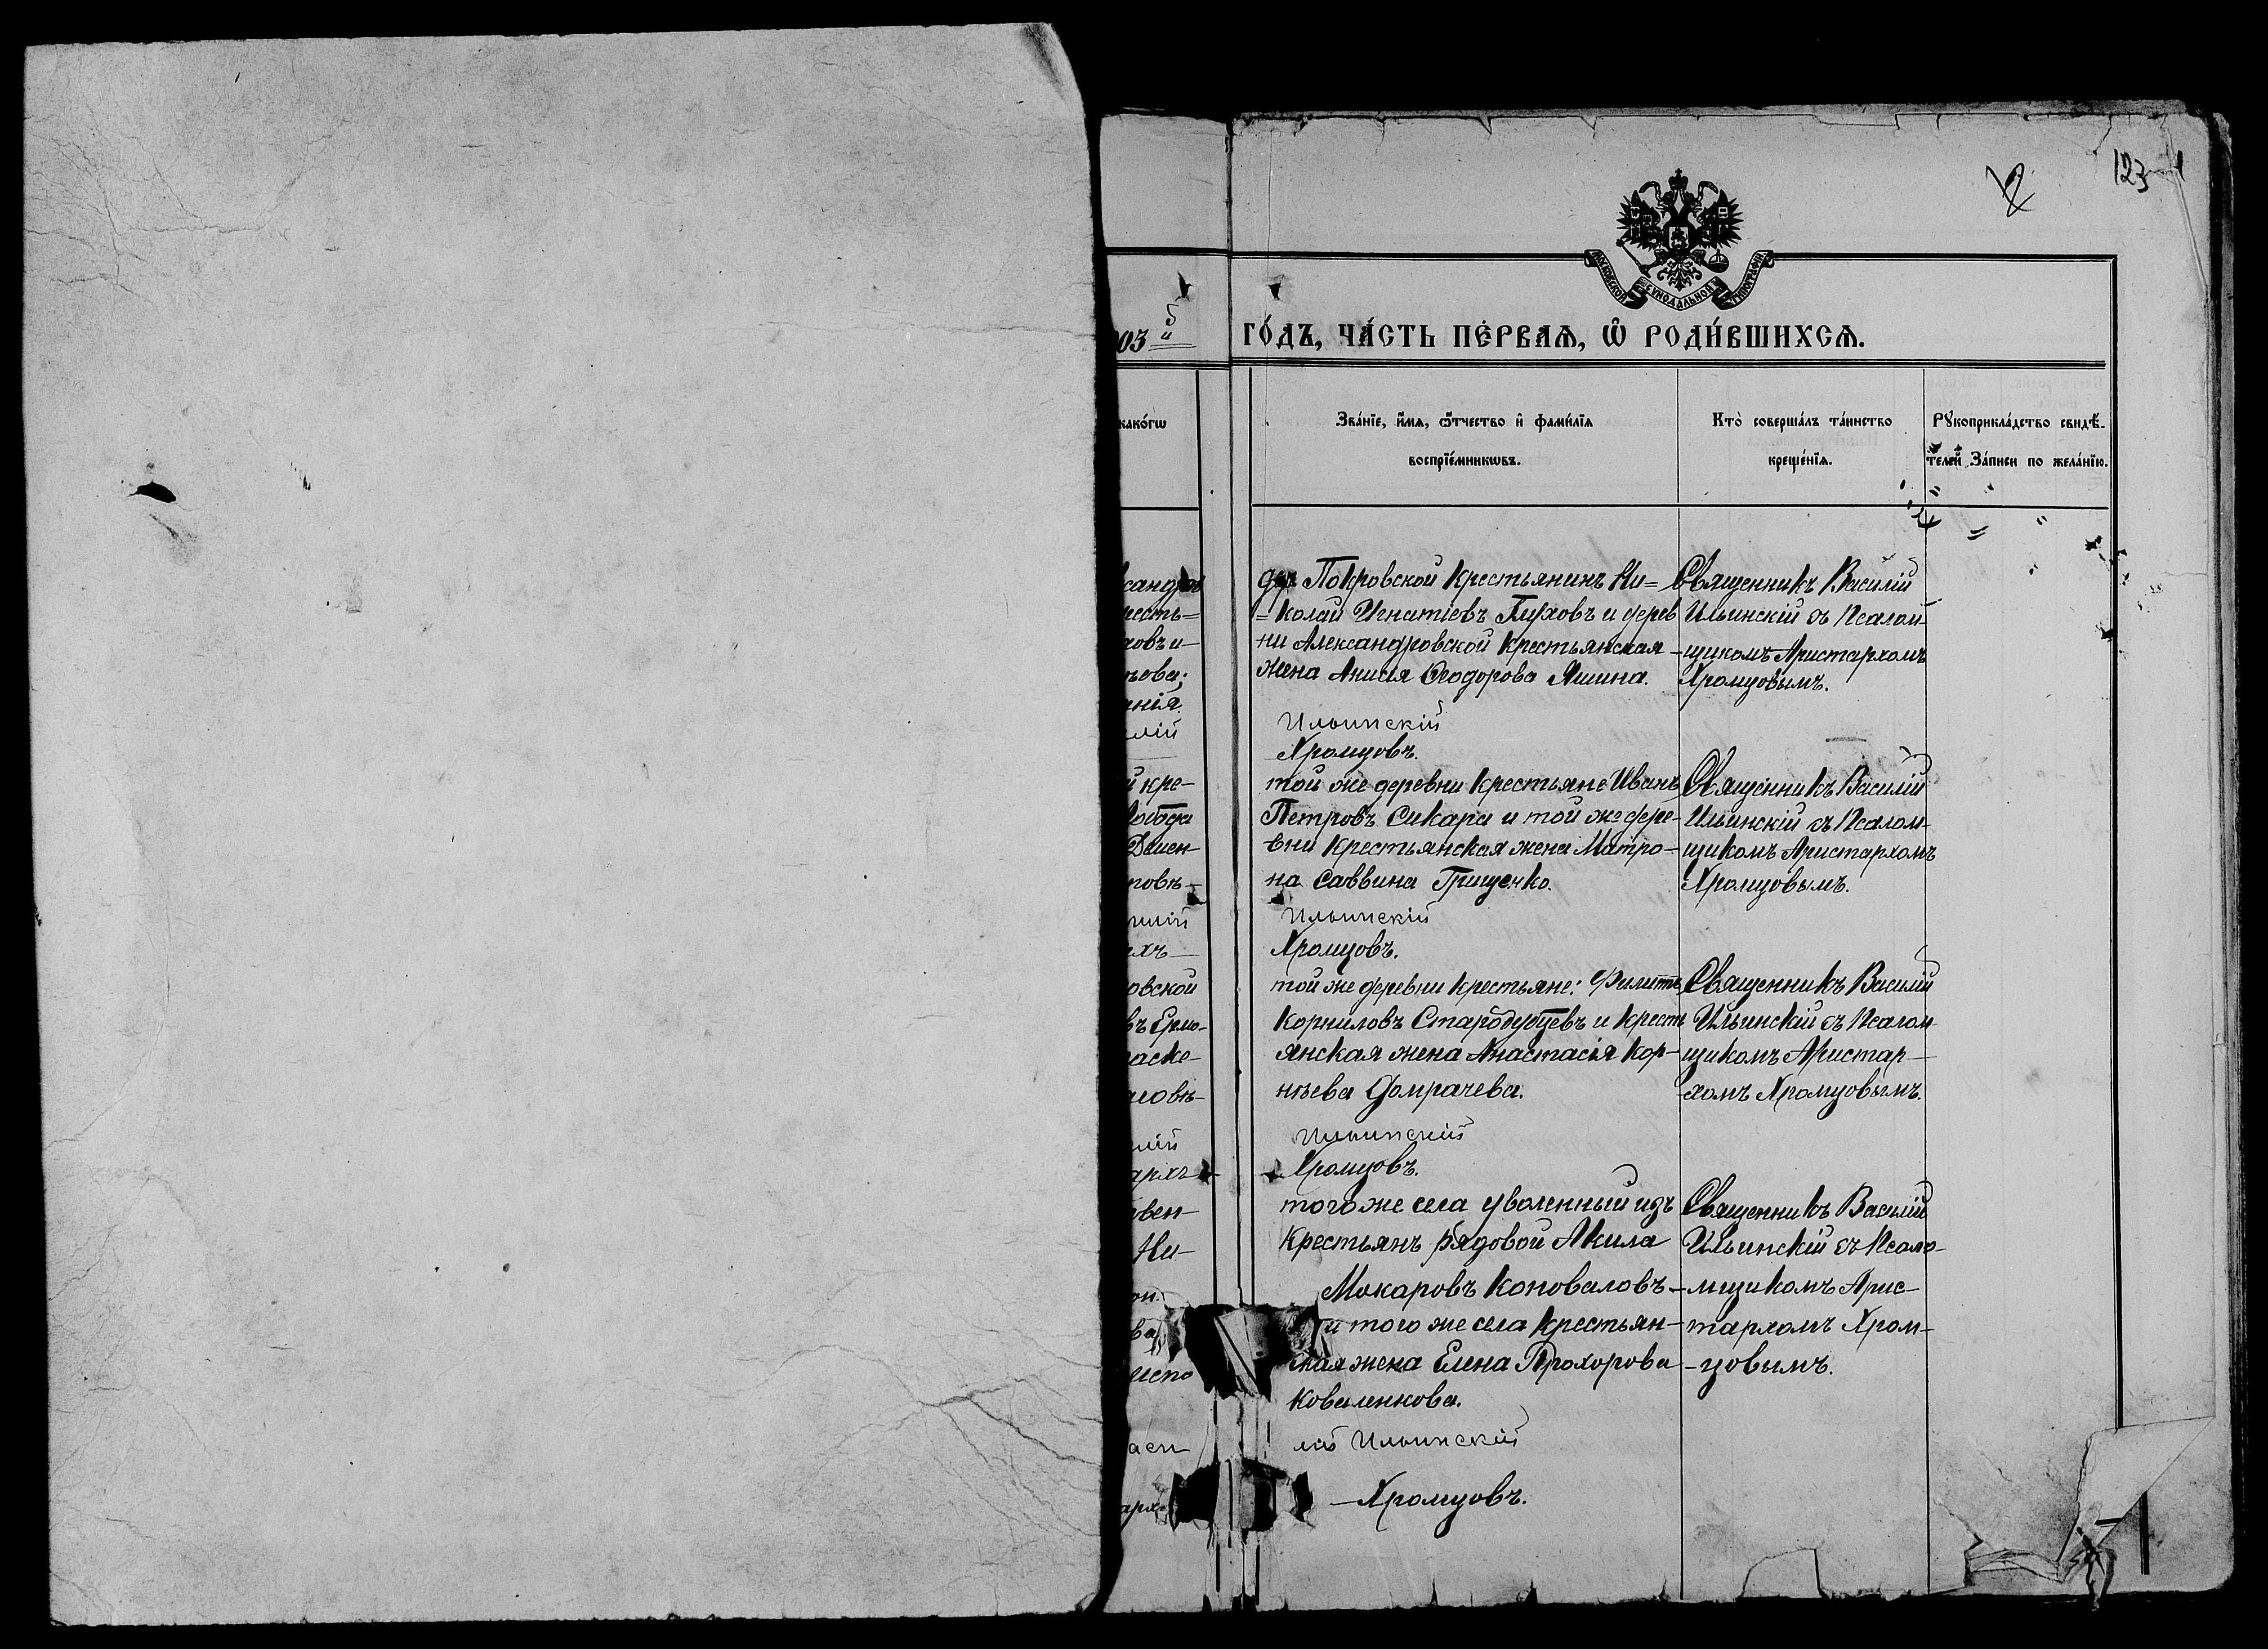 123
МОСКОВСКОЙ СѴНОДАЛЬНОЙ ТИПОГРАФІИ
903 й
ГО́ДЪ, ЧА́СТЬ ПЕ́РВАѦ, Ѡ҆ РОДИ́ВШИХСѦ.
како́гѡ
Зва́нїе, и҆́мѧ, ѻ҆́тчество и҆ фами́лїѧ
воспрїе́мникѡвъ.
Кто̀ соверша́лъ та́инство
креще́нїѧ.
Рꙋкоприкла́дство свидѣ́-
телей За́писи по жела́нїю.
дер Покровской крестьянинъ Ни=
=колай Игнатіевъ Глуховъ и дерев
ни Александровской крестьянская
жена Анисія Ѳеодорова Яшина.
Ильинскій
Хромцовъ.
Священникъ Василій
Ильинскій съ Псалом-
щикомъ Аристархомъ
Хромцовымъ.
той же деревни крестьяне Иванъ
Петровъ Сикара и той же дере-
вни крестьянская жена Матро-
на Саввина Грищенко.
Ильинскій
Хромцовъ.
Священникъ Василій
Ильинскій съ Псалом-
щикомъ Аристархомъ
Хромцовымъ.
той же деревни крестьяне: Филиппъ
Корниловъ Стародубцевъ и кресть
янская жена Анастасія Кор-
нѣева Домрачева.
Ильинскій
Хромцовъ.
Священникъ Василій
Ильинскій съ Псалом-
щикомъ Аристар-
хомъ Хромцовымъ.
тогоже села уволенный изъ
крестьянъ рядовой Акила
Макаровъ Коноваловъ-
и того же села крестьян-
ская жена Елена Прохорова
Коваленкова.
лій Ильинскій
Хромцовъ.
Священникъ Василій
Ильинскій съ Псало-
мщикомъ Арис-
тархомъ Хром-
-цовымъ.
кресть=
ховъ и-
анія.
лій
й кре-
Демен-
повѣ-
илій
хъ
овской
въ Ермо-
аске-
ловѣ-
лій
архъ
вен-
Ни-
он.
ва
аси
арх